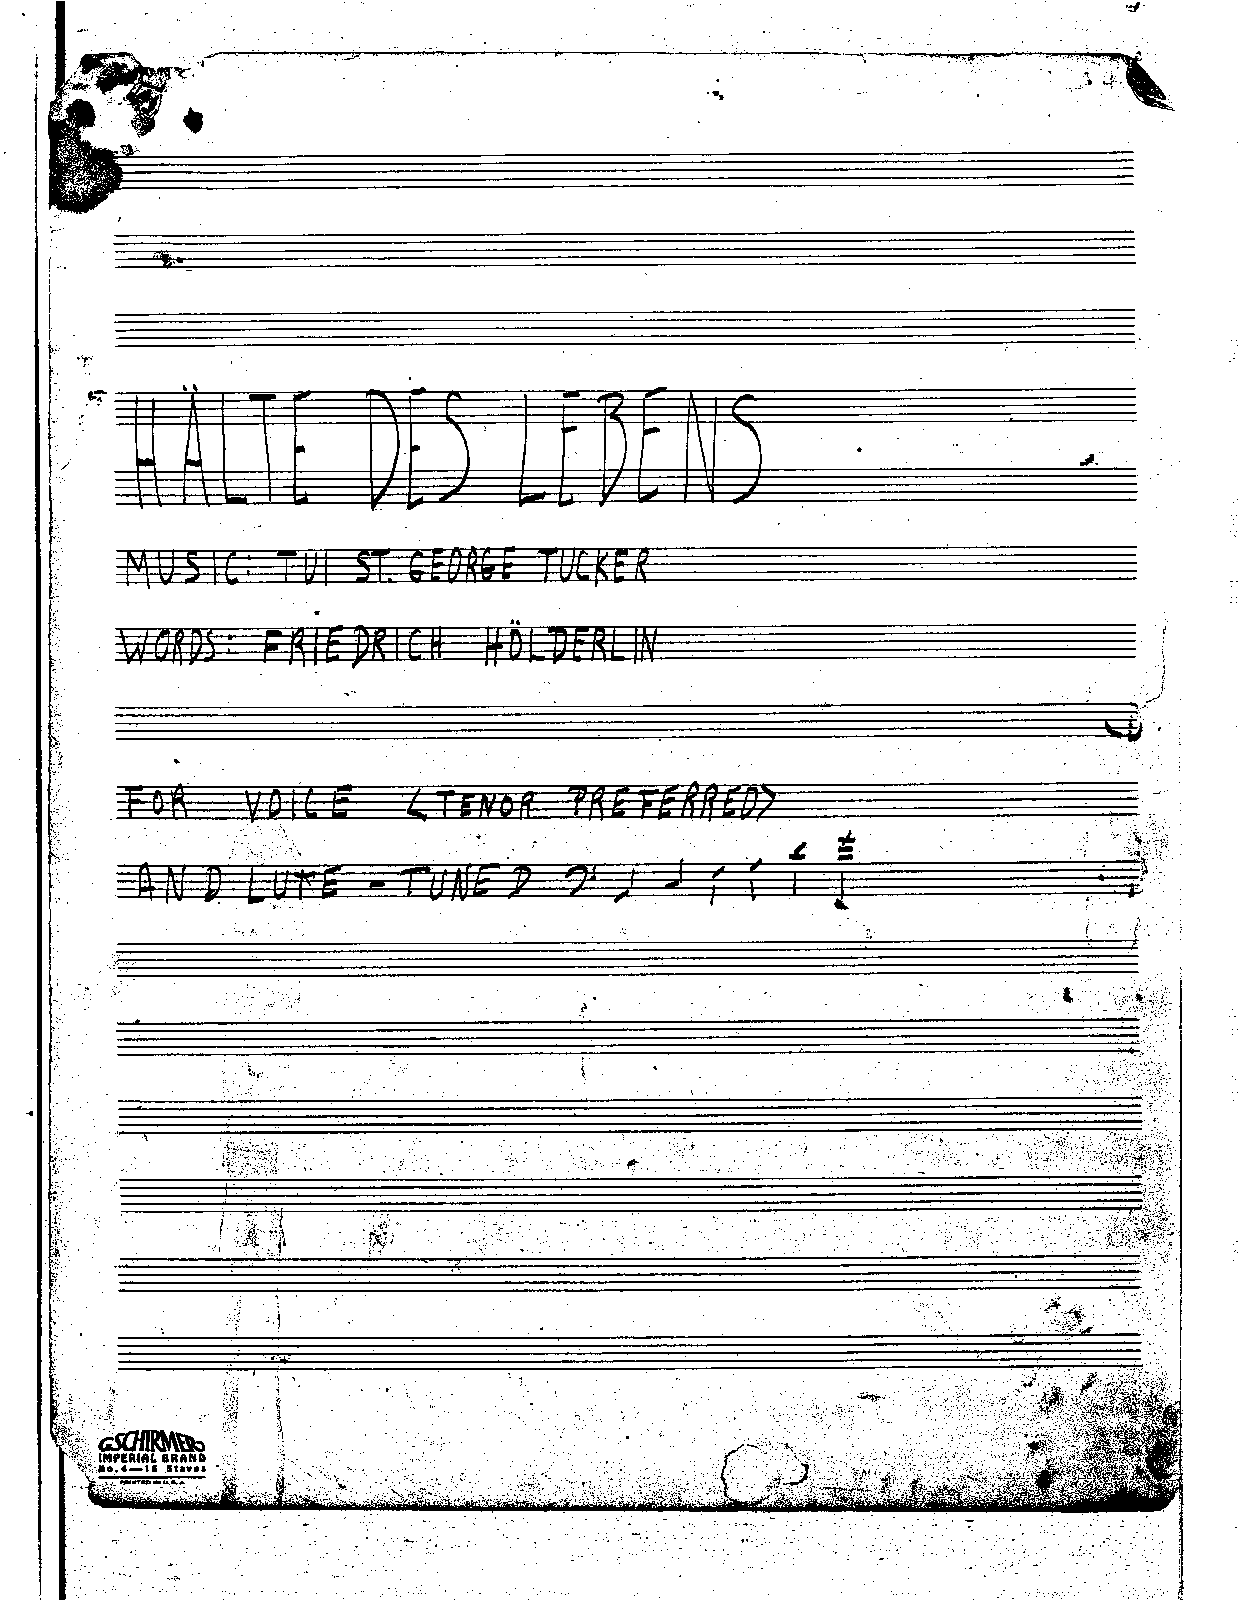 HÄLTE DES LEBENS
MUSIC: TUI ST. GEORGE TUCKER
WORDS: FRIEDRICH HÖLDERLIN
FOR VOICE <TENOR PREFERRED>
AND LUTE - TUNED
G. SCHIRMER
IMPERIAL BRAND
No. 4—16 Staves
PRINTED IN U.S.A.